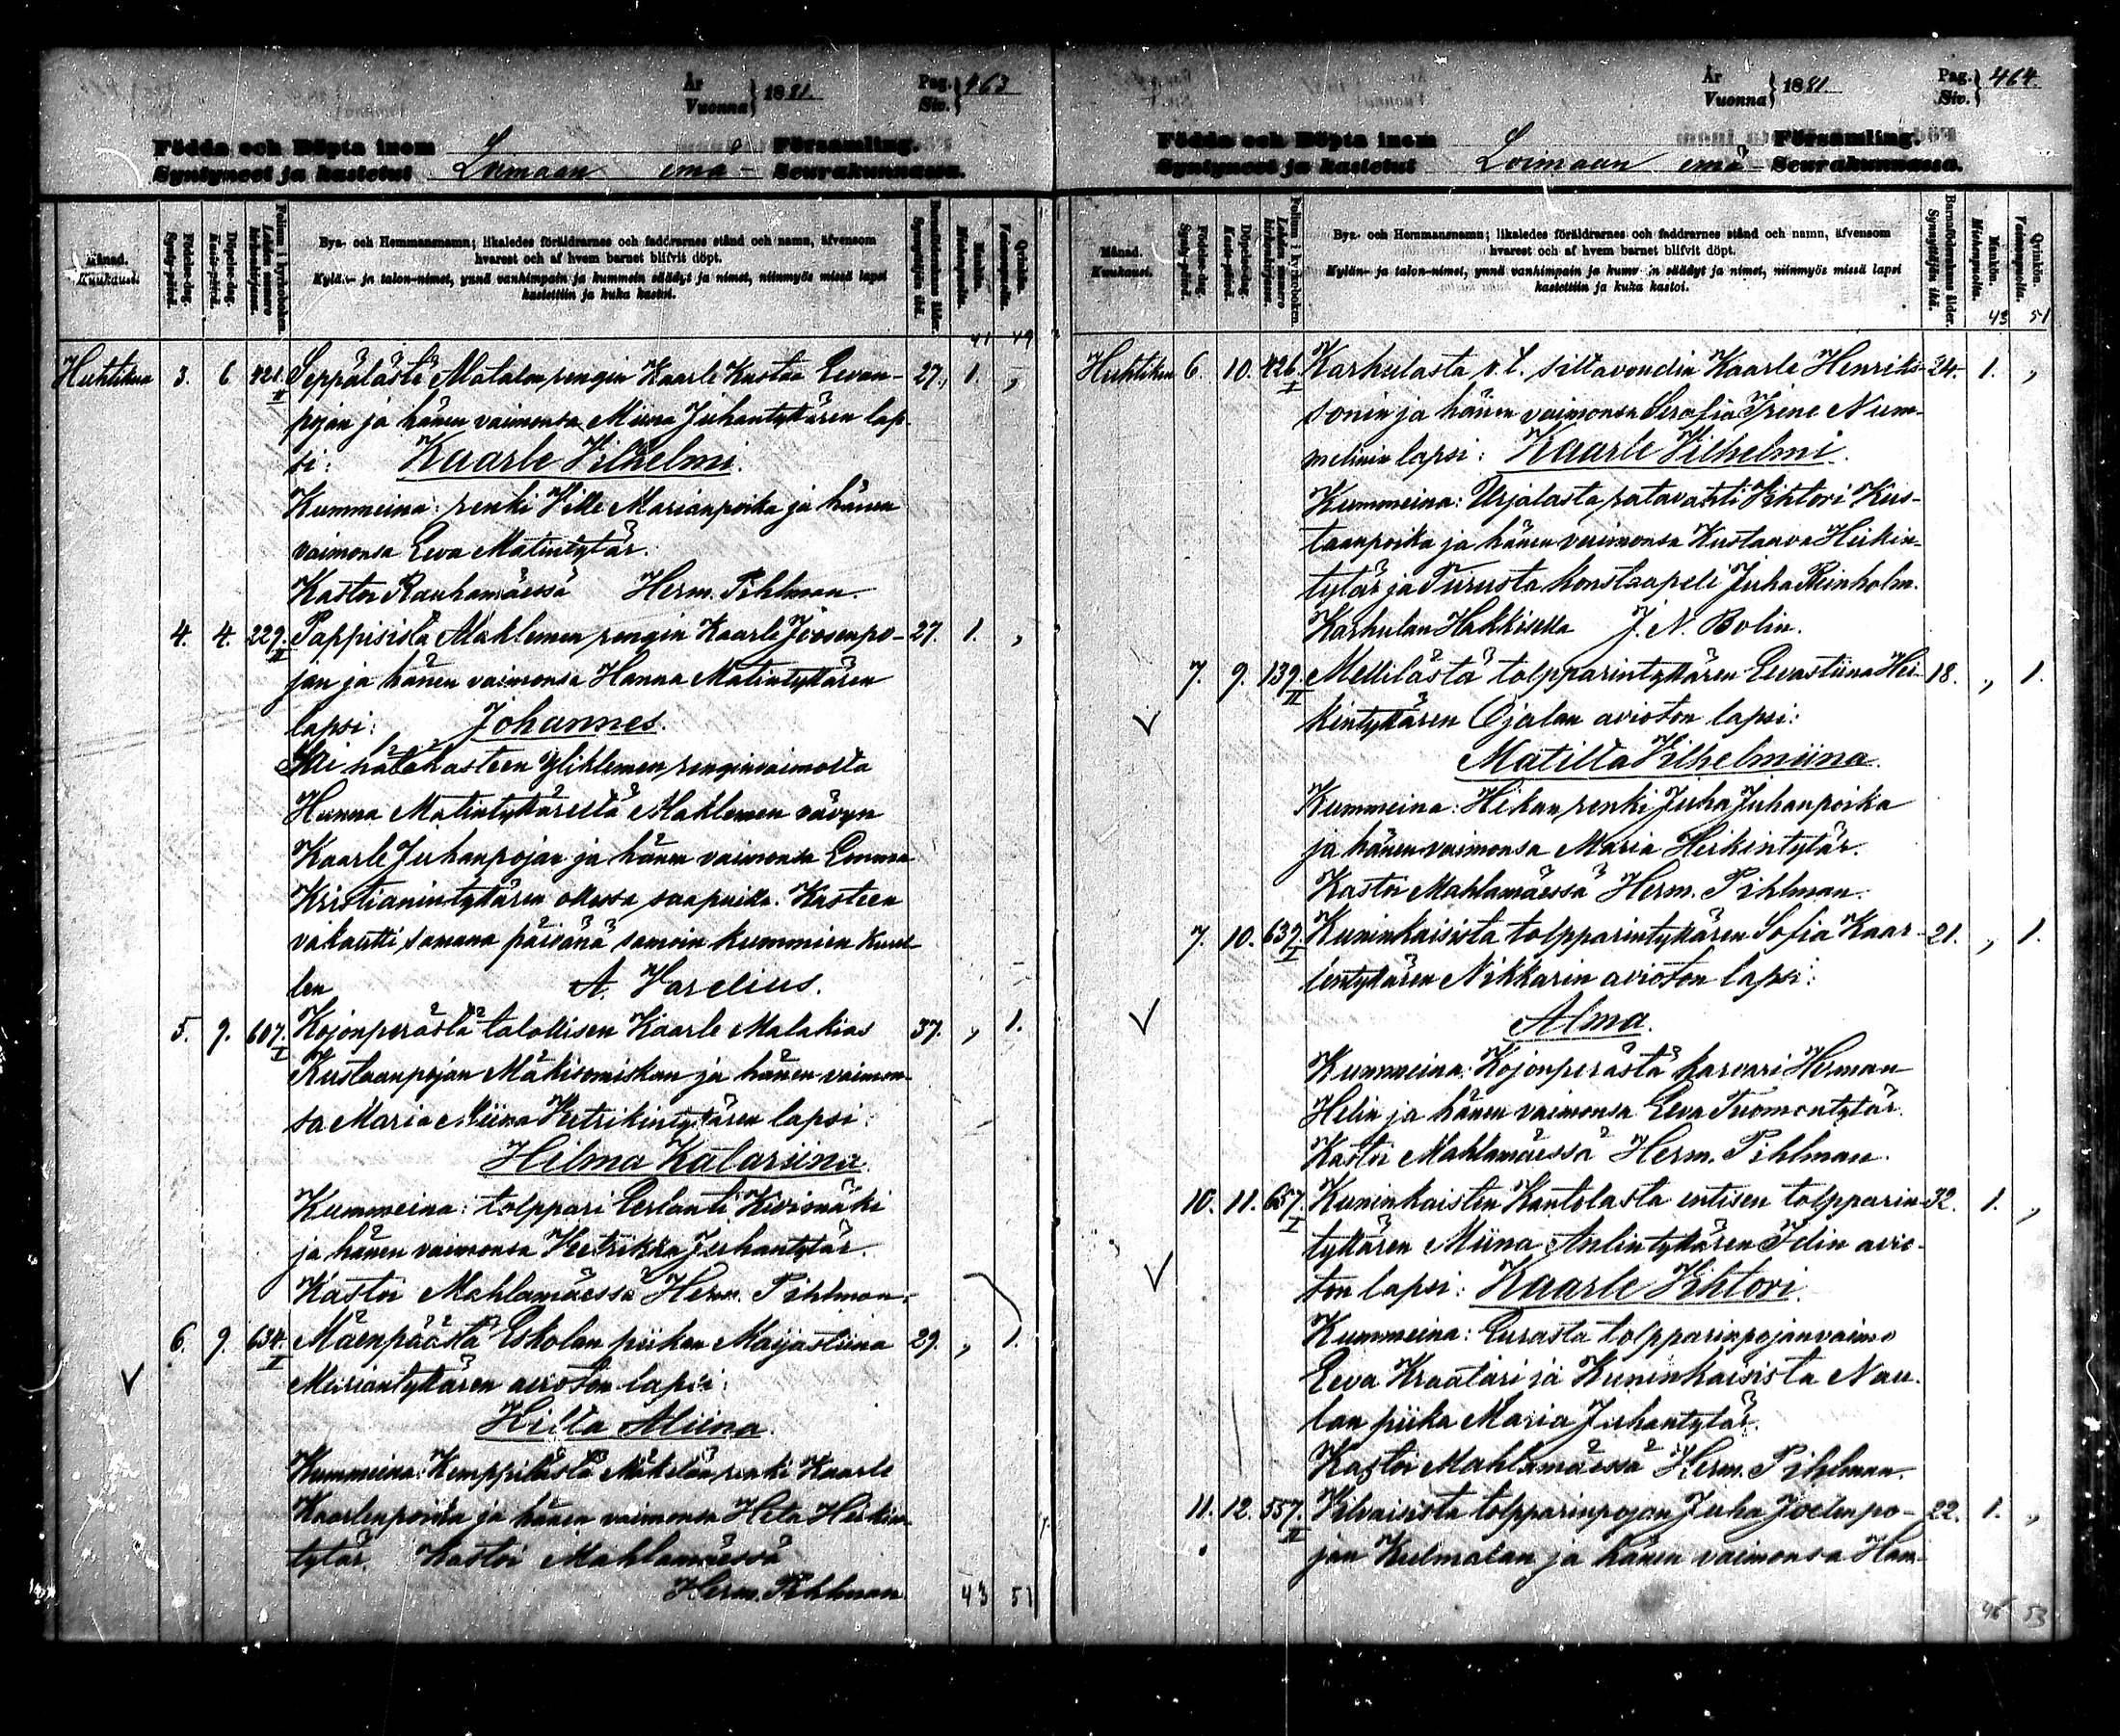 År
Vuonna } 1881.
Pag.
Siv. } 463
Födda och Döpta inom Församling.
Syntyneet ja kastetut Loimaan emä- Seurakunnassa.
Månad.
Kuukausi.
Födelse-dag.
Synty-päivä.
Döpelse-dag.
Kaste-päivä.
Folium i kyrkoboken.
Lehden numero kirkonkirjassa.
Bys- och Hemmansnamn; likaledes föräldrarnes och faddrarnes stånd och namn, äfvensom
hvarest och af hvem barnet blifvit döpt.
Kylän- ja talon-nimet, ynnä vanhimpain ja kummein säädyt ja nimet, niinmyös missä lapsi
kastettiin ja kuka kastoi.
Barnaföderskans ålder.
Synnyttäjän ikä.
Mankön.
Miehenpuolta.
Qvinkön.
Vaimonpuolta.
41 49
Huhtikuu 3. 6 421. II Seppälästä Matalan rengin Kaarle Kustaa Eevan- 27. 1. „
pojan ja hänen vaimonsa Miina Juhantyttären lap-
si: Kaarle Vilhelmi.
Kummeina: renki Ville Marianpoika ja hänen
vaimonsa Eeva Matintytär.
Kastoi Rauhamäessä Herm. Pihlman.
4. 4. 229. II Pappisista Mahlemen rengin Kaarle Joosenpo- 27. 1. „
jan ja hänen vaimonsa Hanna Matintyttären
lapsi: Johannes.
Sai hätäkasteen Ylihlemen renginvaimosta
Hanna Matintyttäreltä Mahlemen vävyn
Kaarle Juhanpojan ja hänen vaimonsa Emma
Kristianintyttären ollessa saapuilla. Kasteen
vakautti samana päivänä samoin kummien kuul-
len A. Varelius.
5. 9. 607. I Kojonperästä talollisen Kaarle Malakias 37. „ 1.
Kustaanpojan Mäkisomiskan ja hänen vaimon-
sa Maria Miina Vetrikintyttären lapsi:
Hilma Katariina.
Kummeina: tolppari Eerlanti Kivismäki
ja hänen vaimonsa Vetrikka Juhantytär.
Kastoi Mahlamäessä Herm. Pihlman.
6. 9. 634. I Mäenpäästä Eskolan piikan Maijastiina 29. „ 1.
Mariantyttären avioton lapsi:
Hilta Miina.
Kummeina: Kemppilästä Mäkelän renki Kaarle
Kaarlenpoika ja hänen vaimonsa Heta Heikin-
tytär. Kastoi Mahlamäessä
Herm. Pihlman
43 51
År
Vuonna } 1881.
Pag.
Siv. } 464.
Födda och Döpta inom Församling.
Syntyneet ja kastetut Loimaan emä- Seurakunnassa.
Månad.
Kuukausi.
Födelse-dag.
Synty-päivä.
Döpelse-dag.
Kaste-päivä.
Folium i kyrkoboken.
Lehden numero kirkonkirjassa.
Bys- och Hemmansnamn; likaledes föräldrarnes och faddrarnes stånd och namn, äfvensom
hvarest och af hvem barnet blifvit döpt.
Kylän- ja talon-nimet, ynnä vanhimpain ja kummein säädyt ja nimet, niinmyös missä lapsi
kastettiin ja kuka kastoi.
Barnaföderskans ålder.
Synnyttäjän ikä.
Mankön.
Miehenpuolta.
Qvinkön.
Vaimonpuolta.
43 51
Huhtikuu 6. 10. 426. I Karhulasta v. t. siltavoudin Kaarle Henriks- 24. 1. „
sonin ja hänen vaimonsa Serafia Irene Num-
melinin lapsi: Kaarle Vilhelmi.
Kummeina: Urjalasta ratavahti Vihtori Kus-
taanpoika ja hänen vaimonsa Kustaava Heikin-
tytär ja Turusta konstaapeli Juha Reinholm.
Karhulan Hakkisella J. N. Bolin.
7. 9. 139. II Mellilästä tolpparintyttären Eevastiina Hei- 18. „ 1.
kintyttären Ojalan avioton lapsi:
Matilta Vilhelmiina.
Kummeina: Hikan renki Juha Juhanpoika
ja hänen vaimonsa Maria Heikintytär.
Kastoi Mahlamäessä Herm. Pihlman.
7. 10. 639. I Kuninkaisista tolpparintyttären Sofia Kaar- 21. „ 1.
lentyttären Nikkarin avioton lapsi:
Alma.
Kummeina: Kojonperästä karvari Herman
Helin ja hänen vaimonsa Eeva Tuomontytär.
Kastoi Mahlamäessä Herm. Pihlman.
10. 11. 657. I Kuninkaisten Kantolasta entisen tolpparin- 32. 1. „
tyttären Miina Antintyttären Idin avio-
ton lapsi: Kaarle Vihtori.
Kummeina: Eurasta tolpparinpojanvaimo
Eeva Kraatari ja Kuninkaisista Nau-
lan piika Maria Juhantytär.
Kastoi Mahlamäessä Herm. Pihlman.
11. 12. 557. II Vilvaisista tolpparinpojan Juha Joelinpo- 22. 1. „
jan Kulmalan ja hänen vaimonsa Han-
46 53